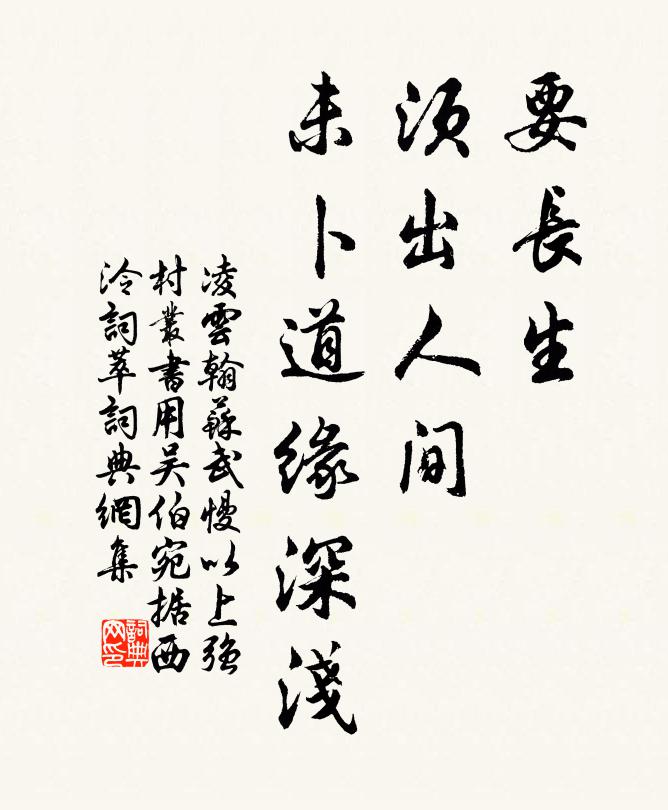 要長生
須出人间
未卜道緣深淺
凌雲翰蘇武慢以上強
村叢書用吴伯宛据西
泠詞萃詞典網集
詞典網印